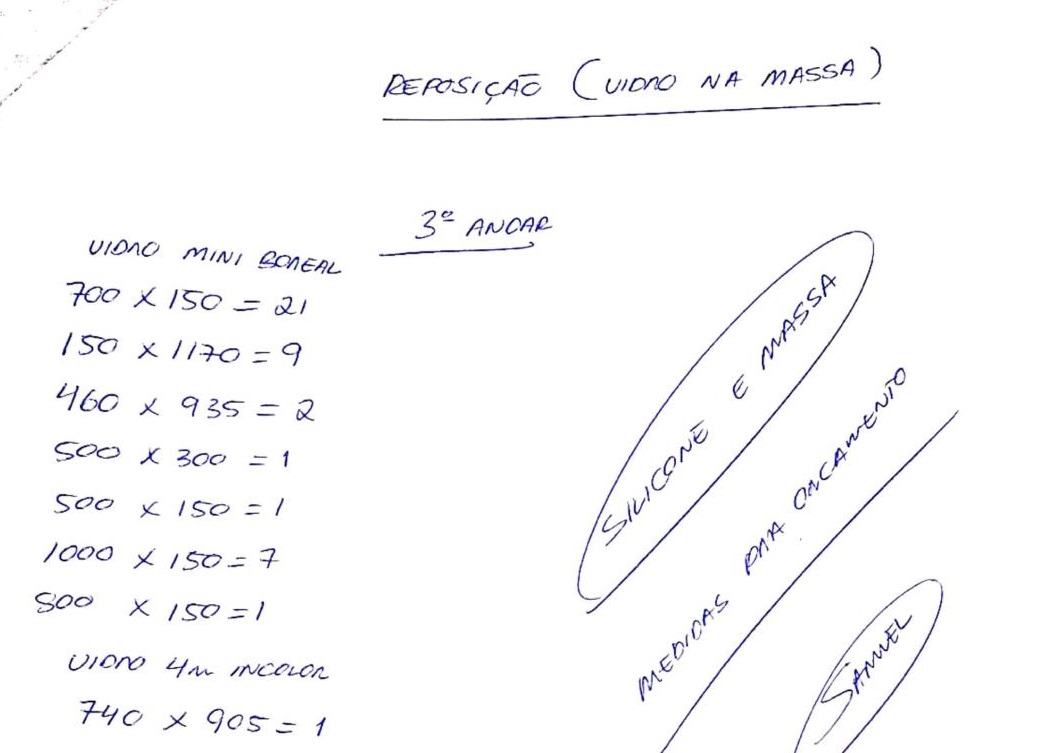 REPOSIÇÃO (VIDRO NA MASSA)
3º ANDAR
VIDRO MINI BOREAL
700 X 150 = 21
150 X 1170 = 9
460 X 935 = 2
500 X 300 = 1
500 X 150 = 1
1000 X 150 = 7
500 X 150 = 1
VIDRO 4M INCOLOR
740 X 905 = 1
SILICONE E MASSA
MEDIDAS PARA ORCAMENTO
SAMUEL